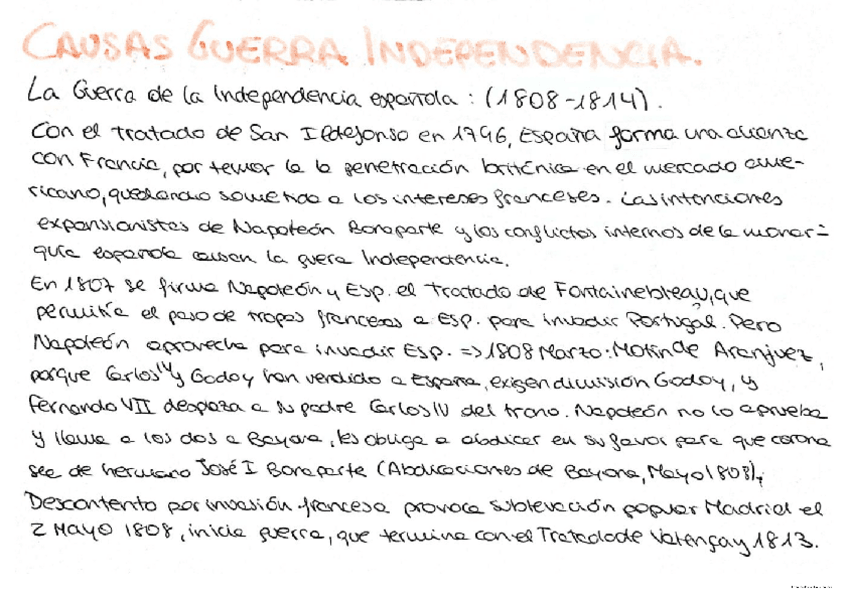 CAUSAS GUERRA INDEPENDENCIA.
La Guerra de la Independencia española : (1808-1814).
Con el tratado de San Ildefonso en 1796, España forma una alianza
con Francia, por temor a la penetración británica en el mercado ame-
ricano, quedando sometida a los intereses franceses. Las intenciones
expansionistas de Napoleón Bonaparte y los conflictos internos de la monar-
quía española causan la guera Independencia.
En 1807 se firma Napoleón y Esp. el Tratado de Fontainebleau, que
permitía el paso de tropas francesas a Esp. para invadir Portugal. Pero
Napoleón aprovecha para invadir Esp. => 1808 Marzo: Motín de Aranjuez,
porque Carlos IV y Godoy han vendido a España, exigen dimisión Godoy, y
Fernando VII desplaza a su padre Carlos IV del trono. Napoleón no lo aprueba
y llama a los dos a Bayona, les obliga a abdicar en su favor para que corona
see de hermano José I Bonaparte (Abdicaciones de Bayona, Mayo 1808).
Descontento por invasión francesa provoca sublevación popular Madrid el
2 Mayo 1808, inicia guerra, que termina con el Tratado de Valençay 1813.